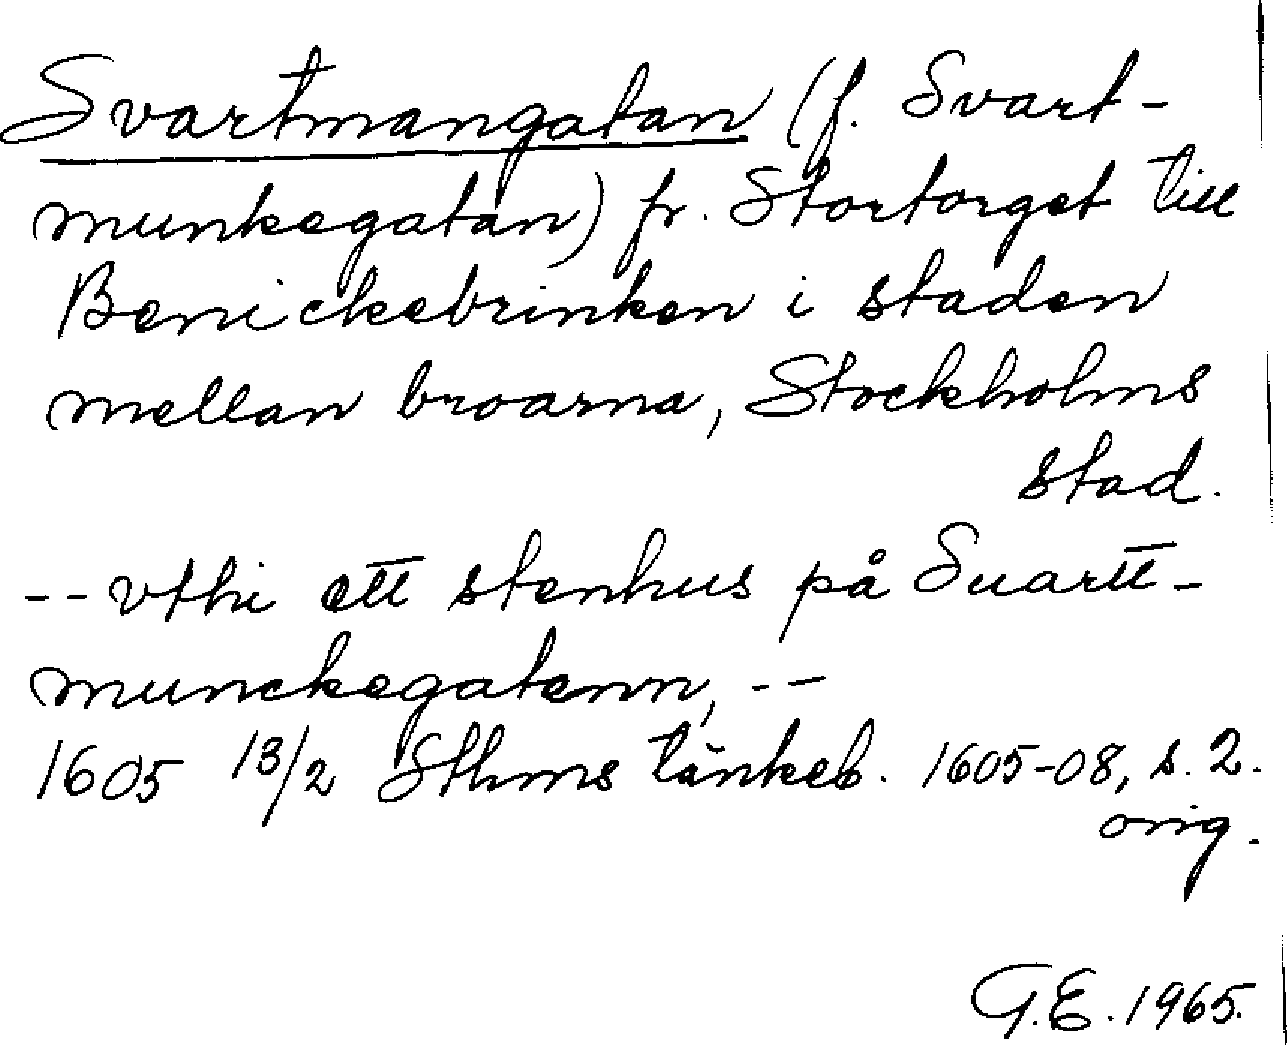 Svartmangatan (f. Svart-
munkegatan) fr. Stortorget till
Benickebrinken i staden
mellan broarna, Stockholms
stad.
-- vthi ett stenhus på Suartt-
munckegatenn, --
1605 13/2 Sthms tänkeb. 1605-08, s. 2.
orig.
G.E. 1965.